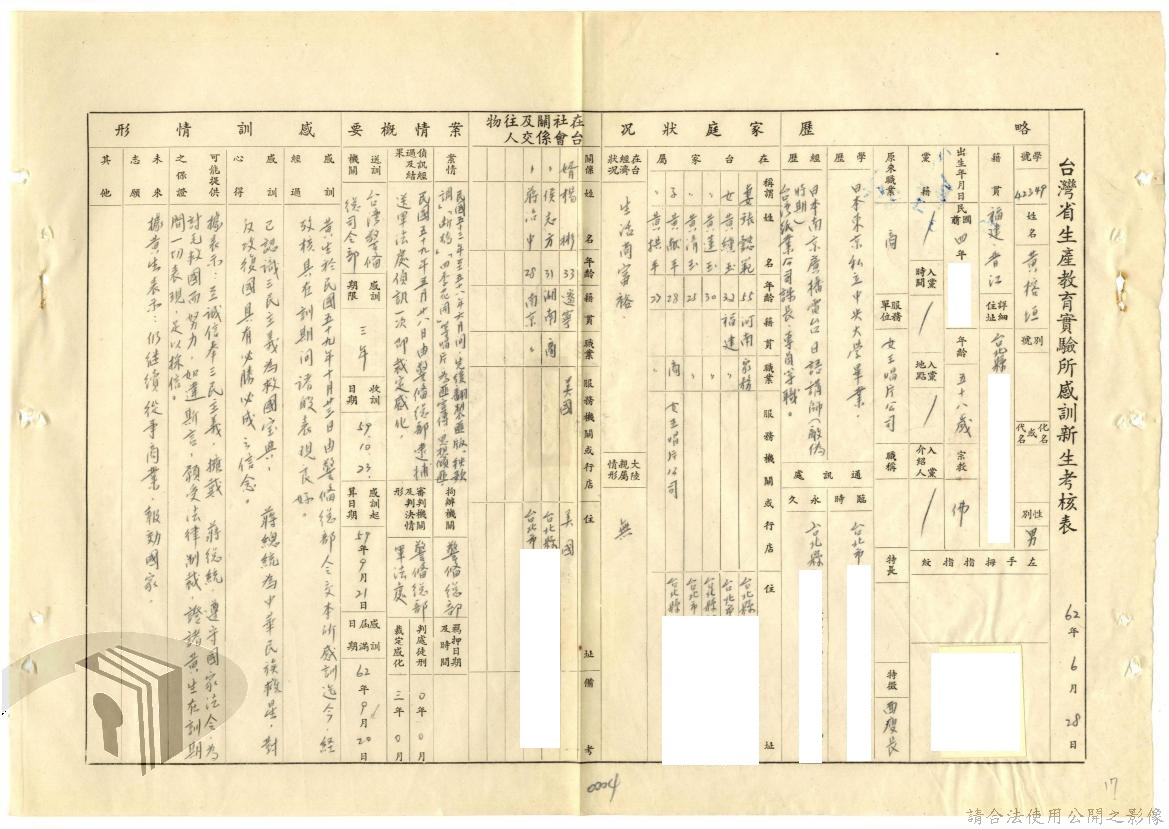 台灣省生產教育實驗所感訓新生考核表
62年6月28日
略歷
學號 42349
姓名 黃榕垣
別號
化名或代名
性別 男
籍貫 福建晉江
詳細住址 台北縣
左手拇指指紋
出生年月日 民國前四年
年齡 五十八歲
宗教 佛
黨籍 /
入黨時間 /
入黨地點 /
入黨介紹人 /
原來職業 商
服務單位 女王唱片公司
職稱
特長
特徵 面瘦長
學歷 日本東京私立中央大學畢業。
經歷 日本南京廣播電台日語講師(敵偽時期)
台灣紙業公司課長、專員等職。
通訊處
臨時 台北市
永久 台北縣
家庭狀況
在台家屬
稱謂 姓名 年齡 籍貫 職業 服務機關或行店 住址
妻 張懿範 55 河南 家務 台北縣
女 黃 玉 32 福建 台北市
黃蓮玉 30 台北縣
黃清玉 25 台北市
子 黃 平 28 商 女王唱片公司 台北縣
黃拱平 27
在台經濟狀況 生活尚富裕。
大陸親屬情形 無
在台社會關係及交往人物
關係 姓名 年齡 籍貫 職業 服務機關或行店 住址 備考
婿 楊彬 33 遼寧 美國 美國
侯志方 31 湖南 商 台北縣
蔣治中 28 南京 台北市
案情概要
案情 民國五十二年至五十八年六月間,先後翻製匪版「秧歌調」「斷橋」「四季花開」等唱片為匪宣傳思想傾匪
拘辦機關 警備總部
羈押日期及時間
偵訊經過及結果 民國五十九年五月廿八日由警備總部逮捕
送軍法處偵訊一次即裁定感化。
審判機關及判決情形 警備總部軍法處
判處徒刑 0年0月
裁定感化 三年0月
送訓機關 台灣警備總司令部
感訓期限 三年
收訓日期 59.10.23.
感訓起算日期 59年9月21日
感訓屆滿日期 62年9月20日
感訓情形
感訓經過 黃生於民國五十九年十月廿三日由警備總部令交本所感訓迄今,經
考核具在訓期間諸般表現良好。
感訓心得 已認識三民主義為救國寶典, 蔣總統為中華民族救星,對
反攻復國具有必勝必成之信念。
可能提供之保證 據表示:1.誠信奉三民主義,擁戴 蔣總統,遵守國家法令,為
討毛救國而努力,如違斯言,願受法律制裁,證諸黃生在訓期
間一切表現,足以採信。
未來志願 據黃生表示:仍繼續從事商業,報効國家。
其他
0004
17
請合法使用公開之影像